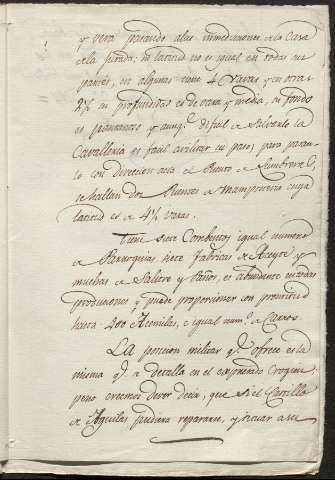 y vera pasando a las inmediaciones a la Casa
de la parada: su latitud no es igual en todas sus
partes, en algunas tiene 4 Varas, y en otras
2½ su profundidad es de vara y media, su fondo
es pantanoso y aunq.e dificil a salvarle la
Cavalleria es facil avilitar su paso, pero para
lo con direccion acia el Puerto
se hallan dos Puentes a mamposteria cuya
latitud es a 4½ varas.
Tiene siete Combentos, igual numero
a Parroquias, siete fabricas de Aceyte y
muchas a Salitre y Paños, es abundante en todas
producciones, y puede proporcionar con prontitud
hasta 200 Acemilas, e igual num.o a Carros.
LA posicion militar q.e ofrece es la
misma q.e a detalla en el Croquis
pero creemos dever decir, que si el Castillo
de Aguilas pudiera repararse, y situar a su